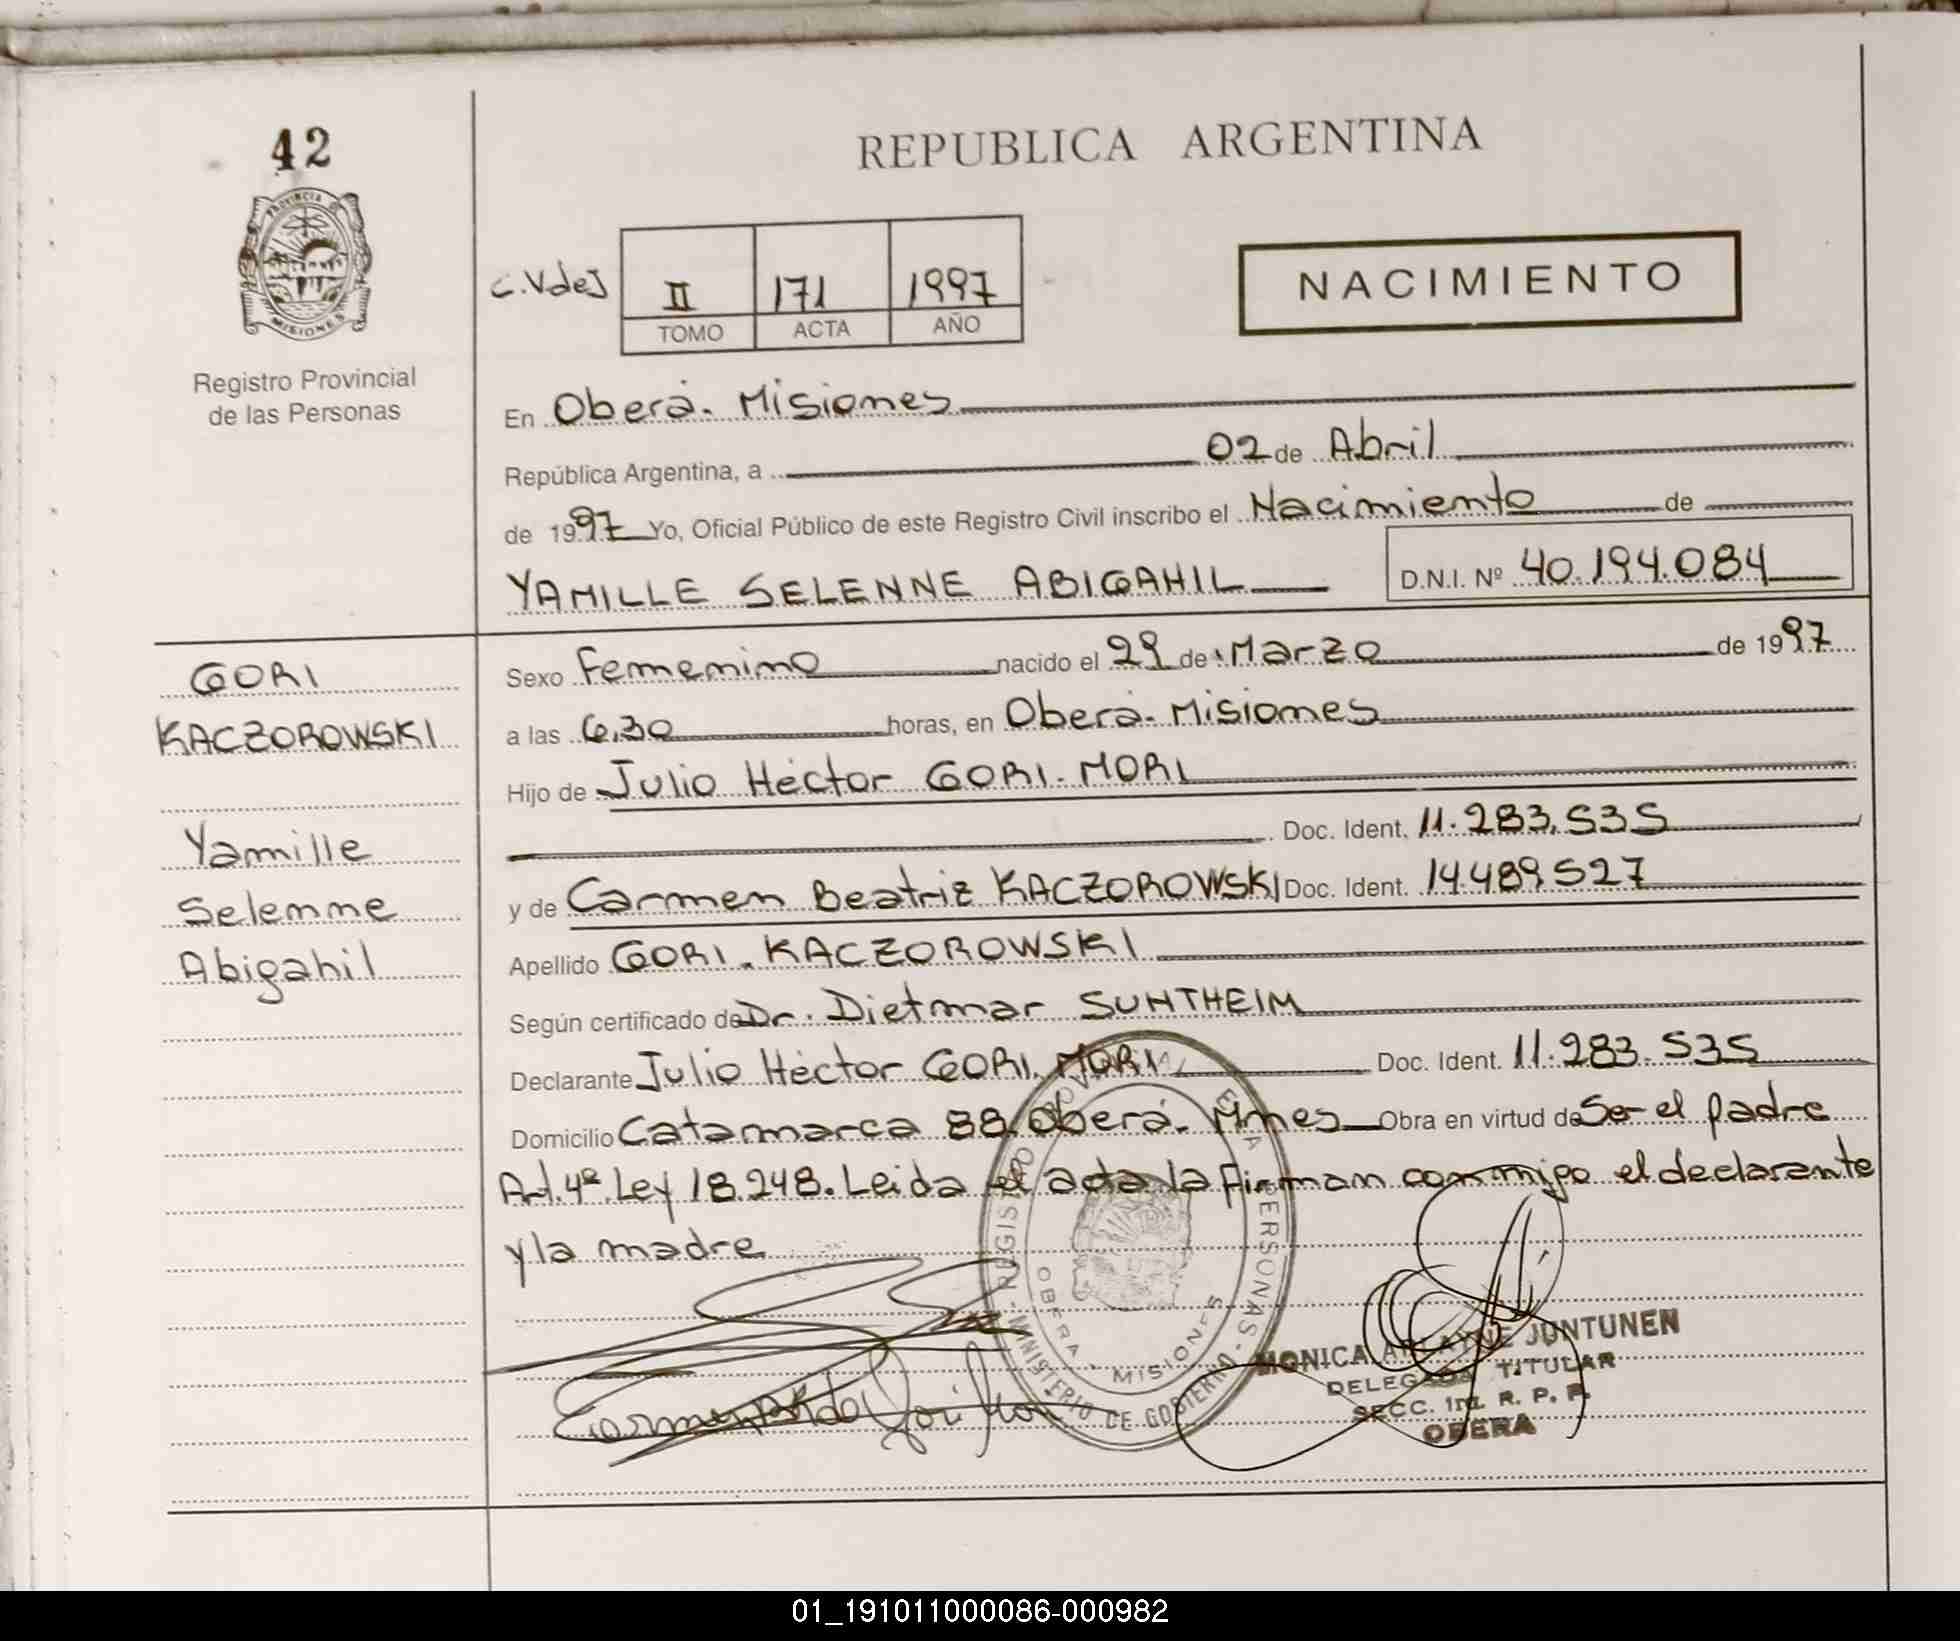 42
REPUBLICA ARGENTINA
PROVINCIA D
MISIONES
Registro Provincial
de las Personas
C.VdeJ
II 171 1997
TOMO ACTA AÑO
NACIMIENTO
En Oberá. Misiones
República Argentina, a 02 de Abril
de 1997 Yo, Oficial Público de este Registro Civil inscribo el Nacimiento de
YAMILLE SELENNE ABIGAHIL D.N.I. Nº 40.194.084
GORI
KACZOROWSKI
Yamille
Selenne
Abigahil
Sexo Femenino nacido el 29 de Marzo de 1997
a las 6,30 horas, en Oberá. Misiones
Hijo de Julio Héctor GORI. MORI
Doc. Ident. 11.283.535
y de Carmen Beatriz KACZOROWSKI Doc. Ident. 14.489.527
Apellido GORI. KACZOROWSKI
Según certificado de Dr. Dietmar SUHTHEIM
Declarante Julio Héctor GORI. MORI Doc. Ident. 11.283.535
Domicilio Catamarca 88. Oberá. Mnes Obra en virtud de Ser el padre
Art. 4º Ley 18.248. Leida el acta la firman conmigo el declarante
y la madre
REGISTRO PROVINCIAL DE LAS PERSONAS - MINISTERIO DE GOBIERNO -
OBERA - MISIONES
MONICA ARLAYNE JUNTUNEN
DELEGADA TITULAR
SECC. 1ra. R. P. P.
OBERA
01_191011000086-000982